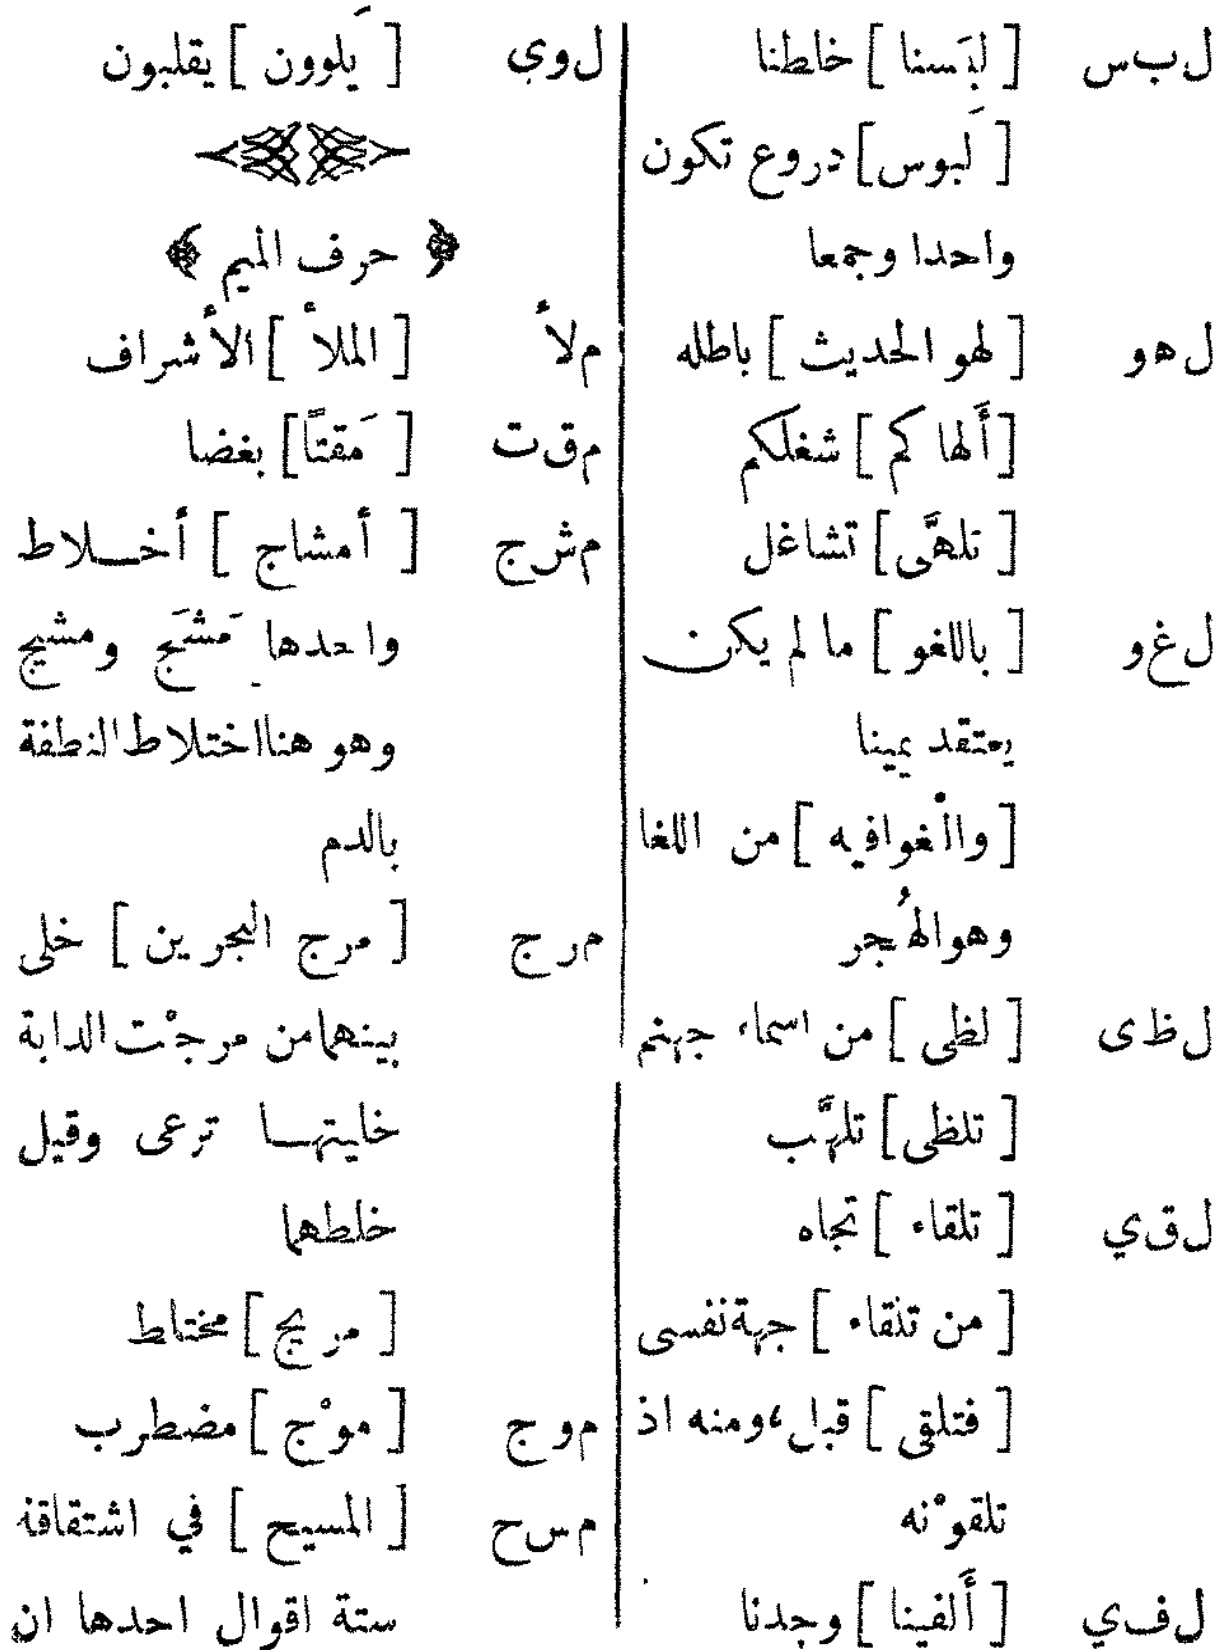 ل ب س [ لَبَسنا ] خاطنا
[ لَبوس ] دروع تكون
واحدا وجمعا
ل ه و [ لهو الحديث ] باطله
[ أَلها كم ] شغلكم
[ تلهَّى ] تشاغل
ل غ و [ باللغو ] ما لم يكن
يعتقد يمينا
[ والْغوافيه ] من اللغا
وهوالهُجر
ل ظ ى [ لظى ] من اسماء جهنم
[ تلظى ] تلهَّب
ل ق ي [ تلقاء ] تجاه
[ من تلقاء ] جهة نفسى
[ فتلقى ] قبل، ومنه اذ
تلقوْنه
ل ف ي [ أَلفينا ] وجدنا
ل و ي [ يَلوون ] يقلبون
﴿ حرف الميم ﴾
م ل أ [ الملأ ] الأشراف
م ق ت [ مَقتاً ] بغضا
م ش ج [ أمشاج ] أخلاط
واحدها مَشَج ومشيج
وهو هنااختلاط النطفة
بالدم
م ر ج [ مرج البحرين ] خلى
بينهمامن مرجْت الدابة
خليتها ترعى وقيل
خلطهما
[ مريج ] مختاط
م و ج [ موْج ] مضطرب
م س ح [ المسيح ] في اشتقاقه
ستة اقوال احدها ان